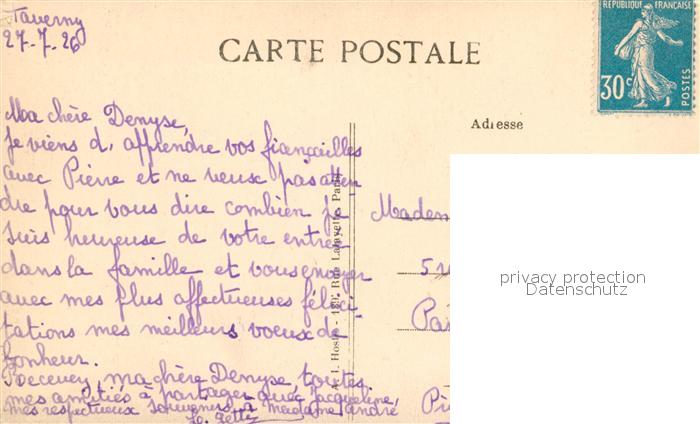 Taverny
27-7-26
CARTE POSTALE
RÉPUBLIQUE FRANÇAISE
30c
POSTES
Adresse
Ma chère Denyse,
Je viens d'apprendre vos fiançailles
avec Pierre et ne veux pas atten
dre pour vous dire combien je
suis heureuse de votre entrée
dans la famille et vous envoyer
avec mes plus affectueuses félici
tations mes meilleurs voeux de
bonheur.
Recevez, ma chère Denyse, toutes
mes amitiés à partager avec Jacqueline,
mes respectueux souvenirs à Madame André
A. L. Hosk - 189, Rue Lafayette, Paris
Madem
Pa
privacy protection
Datenschutz